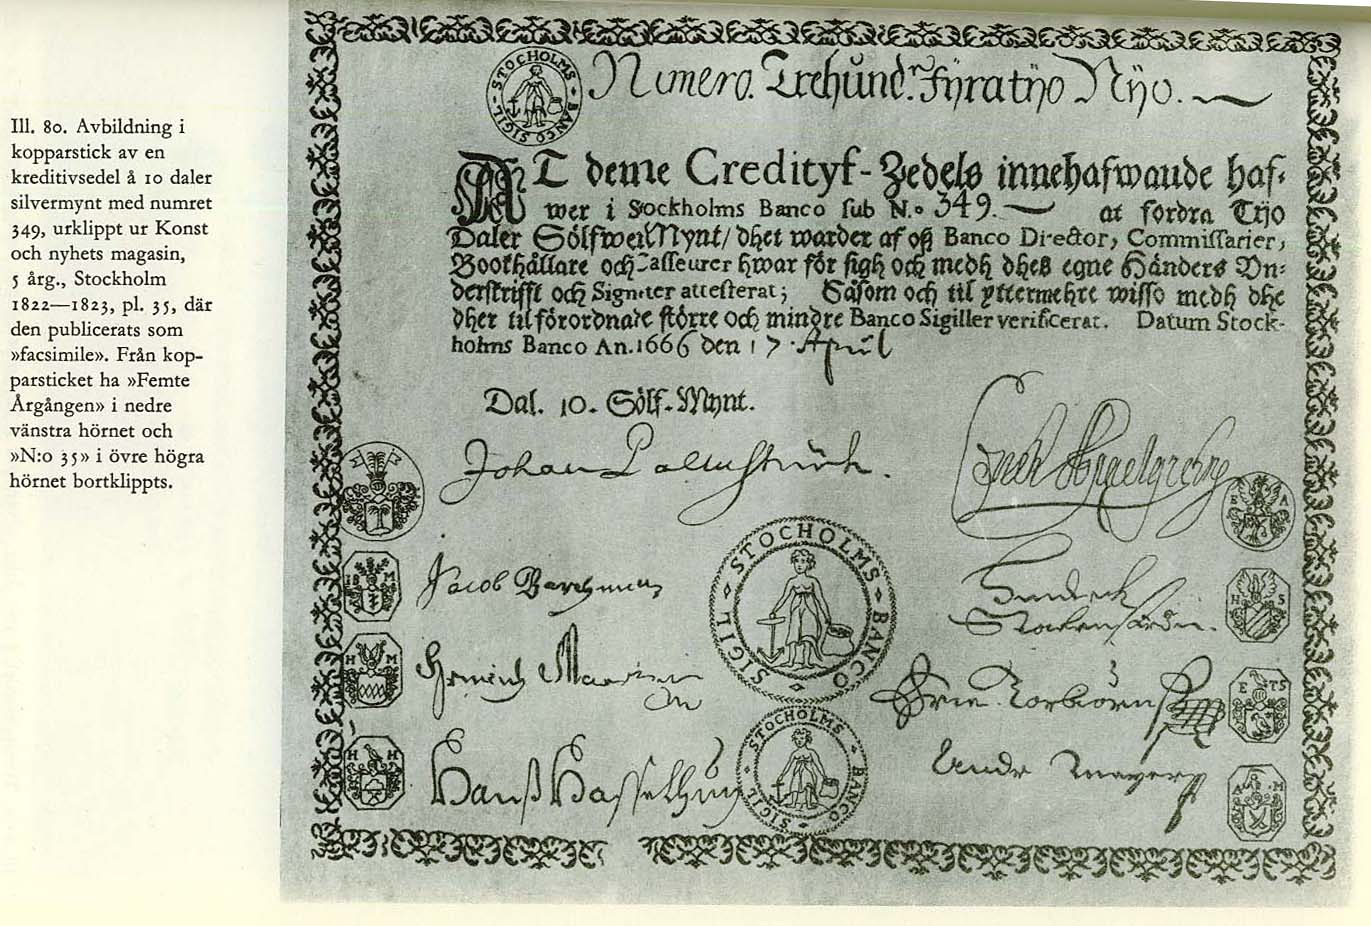 Ill. 80. Avbildning i
kopparstick av en
kreditivsedel å 10 daler
silvermynt med numret
349, urklippt ur Konst
och nyhets magasin,
5 årg., Stockholm
1822—1823, pl. 35, där
den publicerats som
»facsimile». Från kop-
parsticket ha »Femte
Årgången» i nedre
vänstra hörnet och
»N:o 35» i övre högra
hörnet bortklippts.
STOCHOLMS BANCO SIGIL
Numero. Trehund.r Fÿratÿo Nÿo.
AT denne Credityf-Zedels innehafwande haf-
wer i Stockholms Banco sub N.o 349. at fordra Tijo
Daler Sölfwer Mynt/ dhet warder af oß Banco Director, Commissarier,
Bookhållare och Casseurer hwar för sigh och medh dhes egne Händers Vn-
derskrifft och Signeter attesterat; Såsom och til yttermehre wisso medh dhe
dher til förordnade större och mindre Banco Sigiller verificerat. Datum Stock-
holms Banco An. 1666 den 17 April
Dal. 10. Sölf-Mynt.
Johan Palmstruch.
Jacob Barchman
STOCHOLMS BANCO SIGIL
I B M
H S
H M
E T S
Hanß Hasselhun
STOCHOLMS BANCO SIGIL
H H
A M